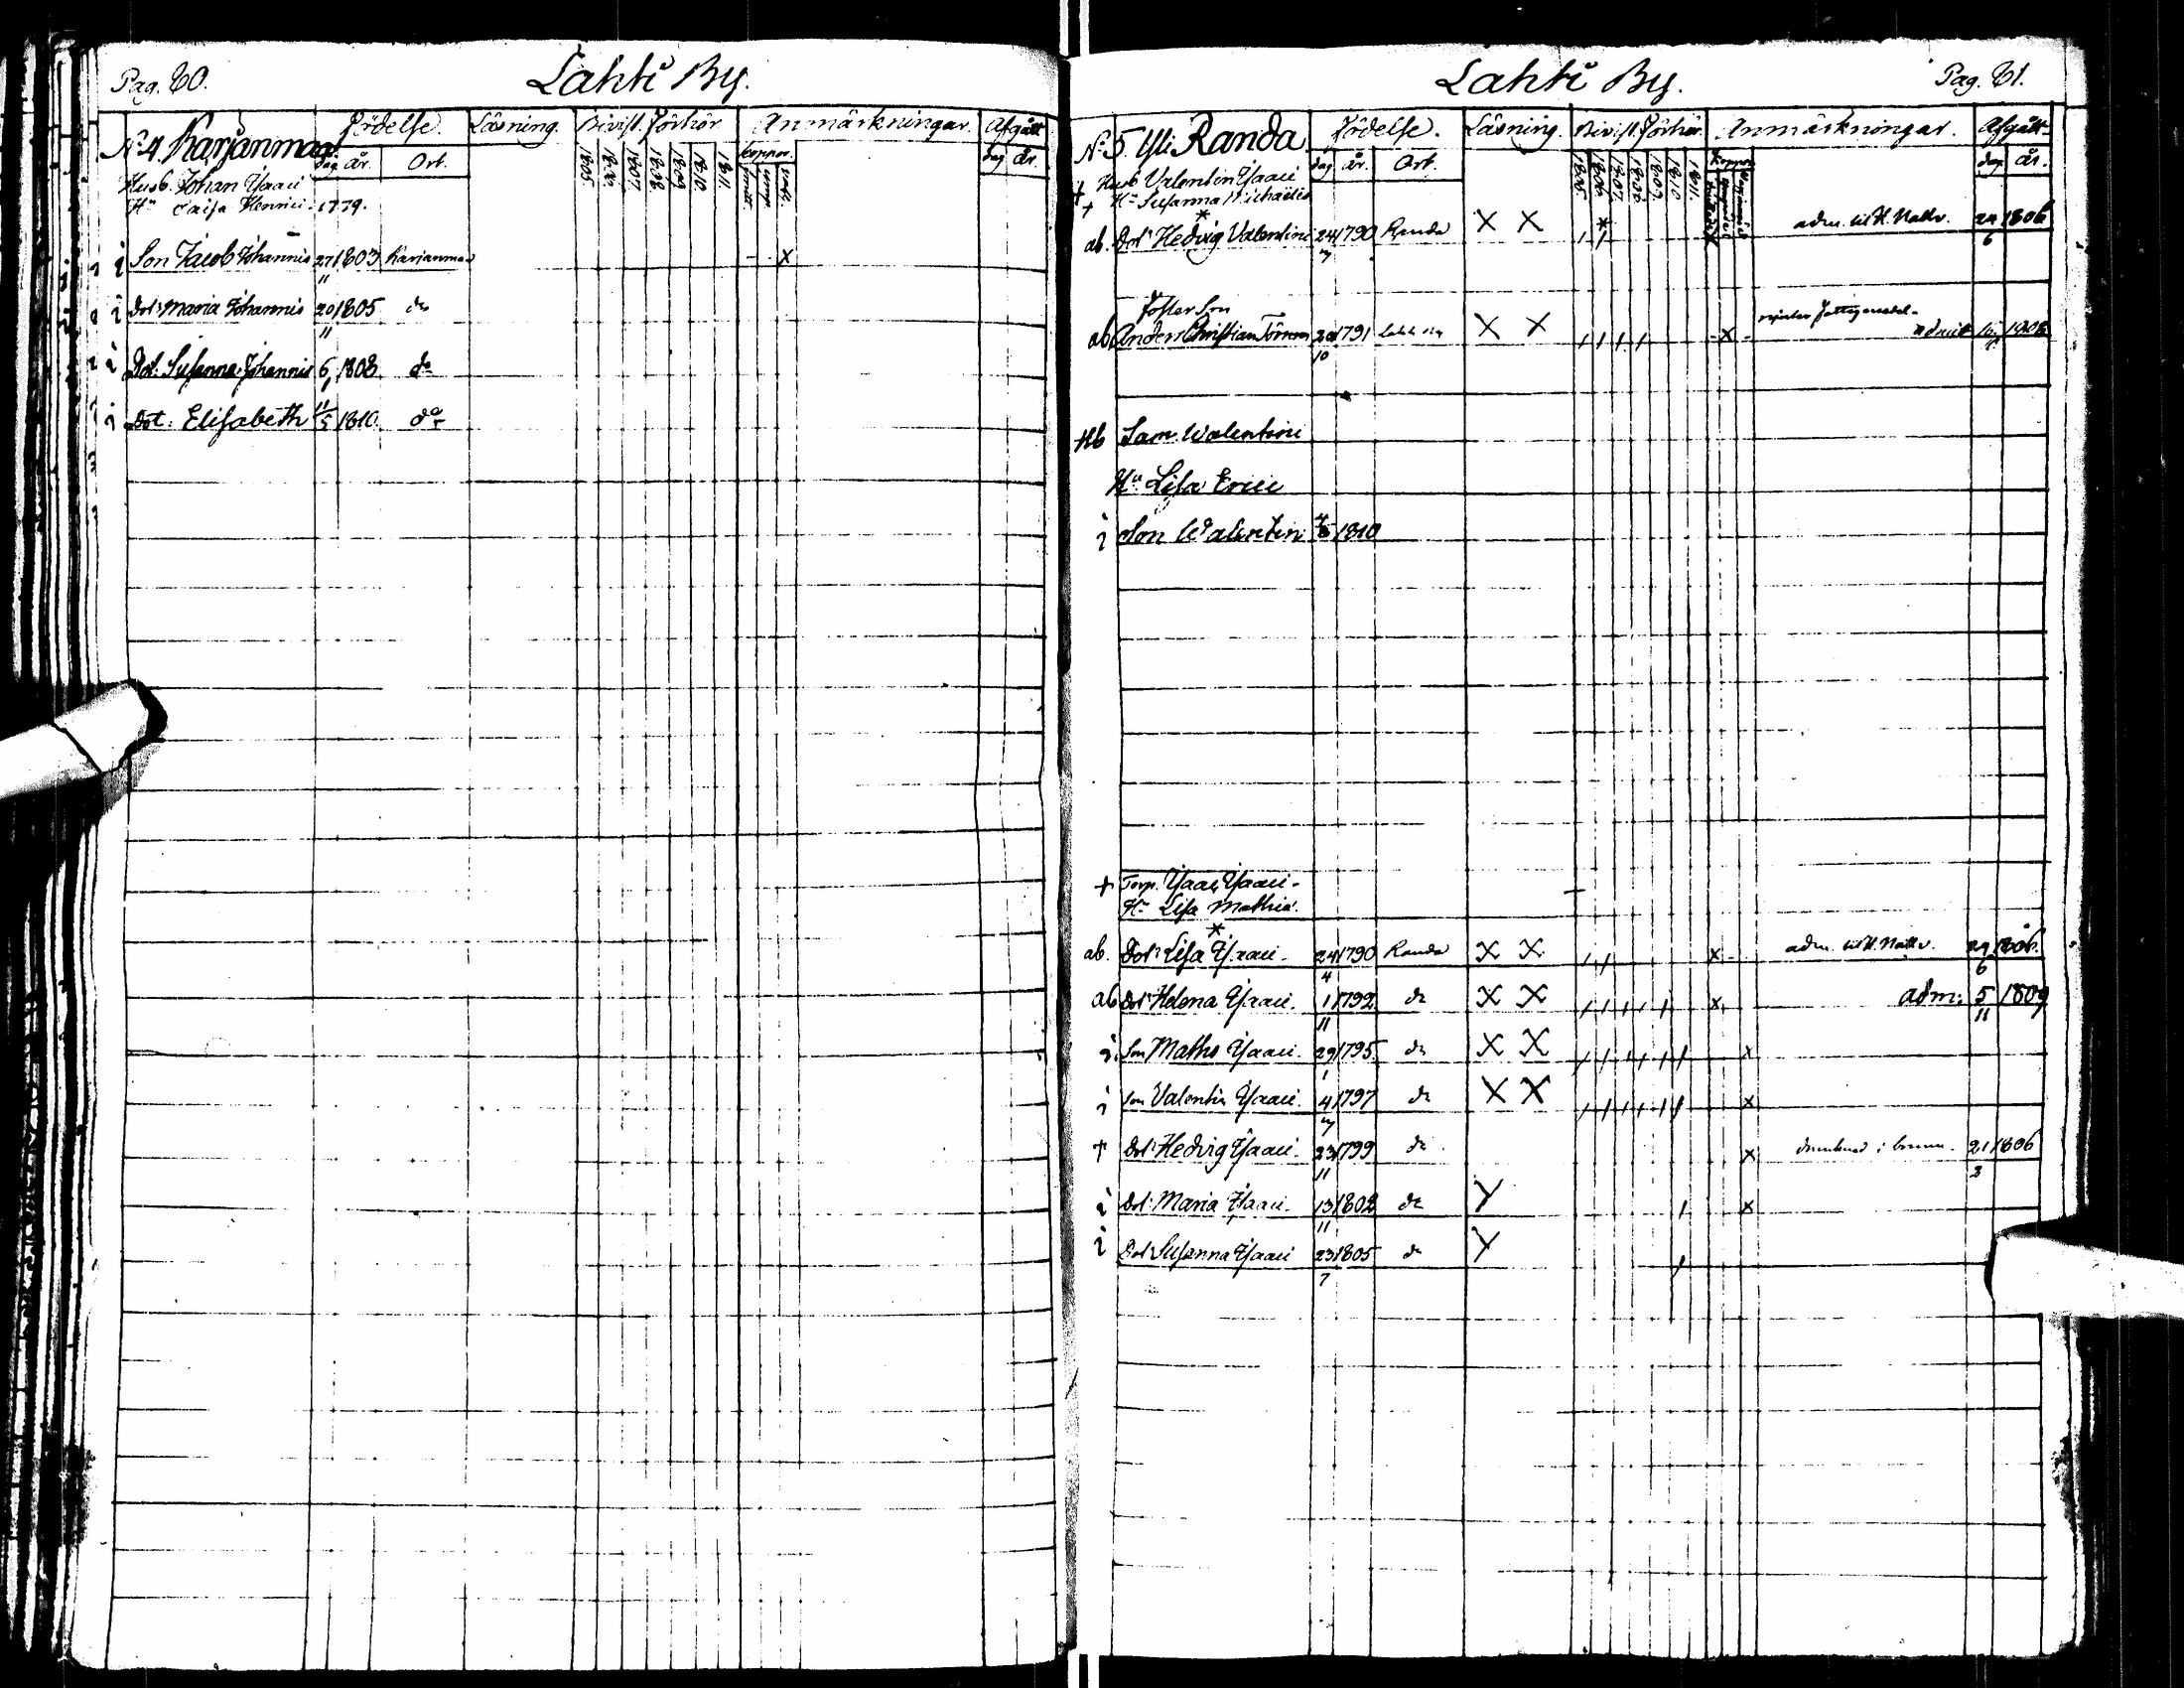 Pag. 60.
Lahti By.
No. 4. Karjanmaa
Födelse. Läsning. Divist. Förhör Anmärkningar. Afgått
dag år. Ort. 1805. 1806. 1807. 1808 1809 1810 1811. koppor. dag år.
Husb. Johan Isaaci
Hu Caisa Henrici. 1779.
i Son Jacob Johannis 27/11 1803 Karjanmaa x
i Dot: Maria Johannis 20/11 1805 do
i Dot: Susanna Johannis 6/1 1808 do
i Dot: Elisabeth 11/5 1810. do
Lahti By.
Pag. 61.
No. 5. Yli Randa
Födelse. Läsning. Divist. Förhör. Anmärkningar. Afgått
dag år. Ort. 1805. 1806 1807 1808 1809. 1810 1811. Koppor dag år.
+ Husb Valentin Isaaci
+ Hu Susanna Michaelis
ab. Dot: Hedvig Valentini 24 1790 Randa X X adm. til H. Nattv. 24/6 1806
Foster Son
ab Anders Christian 20/10 1791 X X x
Hb Sam. Walentini
Hu Lisa Erici
i Son Walentin 1810
+ Torp. Isaac Isaaci.
Hu Lisa Mathiæ.
ab. Dot: Lisa Isaaci 24/4 1790 Randa X X x adm. til H. Nattv. 24/6 1806.
ab Dot: Helena Isaaci. 1/11 1792 do X X x adm: 5/11 1809
i. Son Maths Isaaci. 29/1 1795. do X X x
i Son Valentin Isaaci. 4 1797 do X X x
+ Dot: Hedvig Isaaci. 23/11 1799 do x 21/3 1806
i Dot: Maria Isaaci. 13/11 1802 do Y x
i Dot: Susanna Isaaci 23/7 1805 do Y